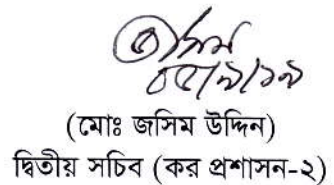 ০৫/৯/১৯
(মোঃ জসিম উদ্দিন)
দ্বিতীয় সচিব (কর প্রশাসন-২)